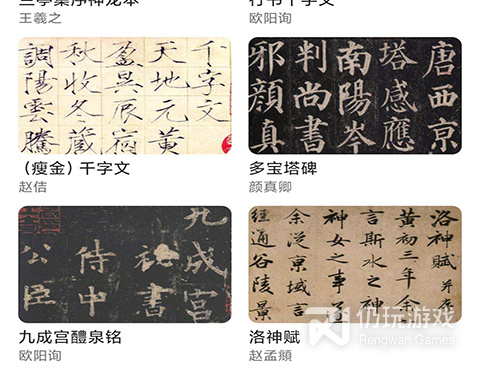 兰亭集序神龙本
王羲之
行书千字文
欧阳询
千字文
天地元黄
盈昃辰宿
秋收冬藏
調陽雲騰
(瘦金) 千字文
赵佶
唐西京
塔感應
南陽岑
判尚書
邪顏真
多宝塔碑
颜真卿
九成宮
秘書
侍中
公臣
九成宫醴泉铭
欧阳询
洛神賦
黃初三年余
言斯水之神
神女之事遂
余從京域言
通谷陵景
洛神赋
赵孟頫
仍玩游戏
Rengwan Games